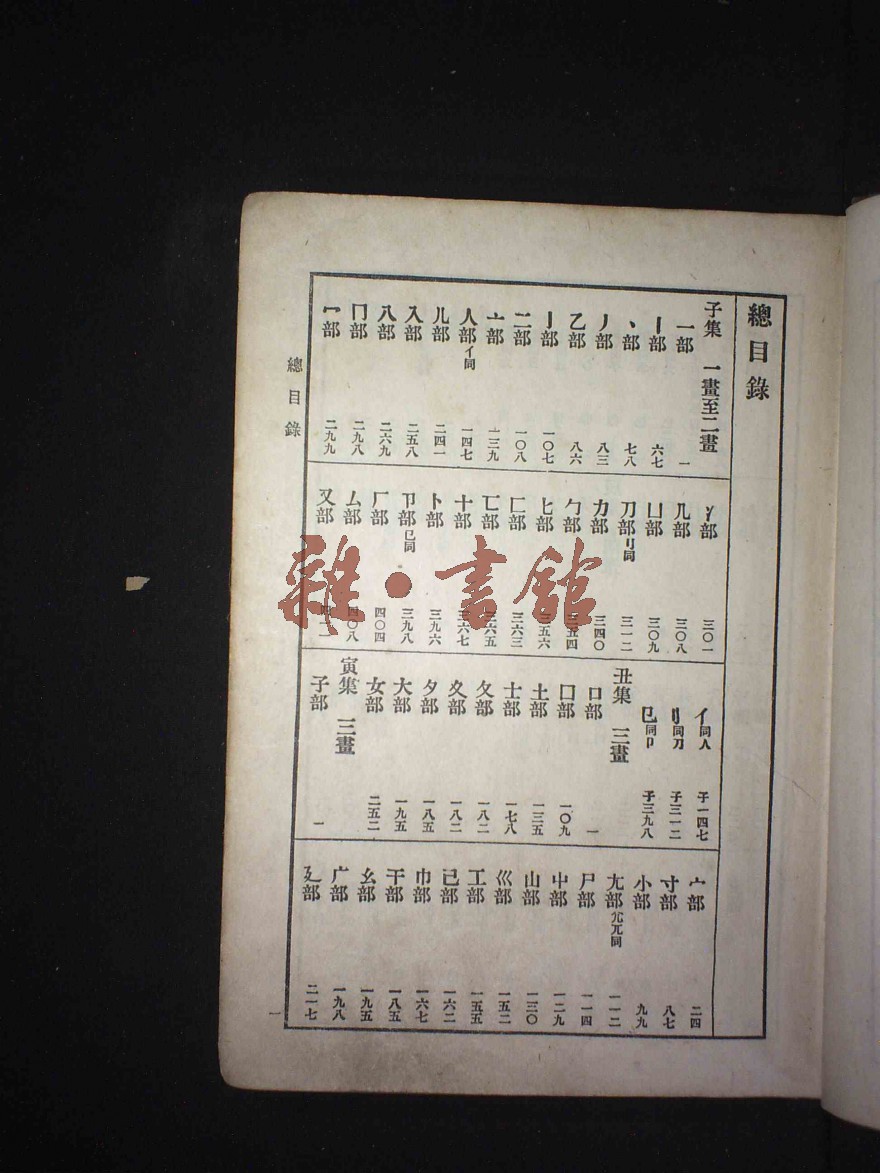 總目錄
子集 一畫至二畫
一部 一
丨部 六七
丶部 七八
丿部 八三
乙部 八六
亅部 一〇七
二部 一〇八
亠部 一三九
人部亻同 一四七
儿部 二四一
入部 二五八
八部 二六九
冂部 二九八
冖部 二九九
冫部 三〇一
几部 三〇八
凵部 三〇九
刀部刂同 三一二
力部 三四〇
勹部 三五四
匕部 三五六
匚部 三六三
匸部 三六五
十部 三六七
卜部 三九六
卩部㔾同 三九八
厂部 四〇四
厶部 四〇八
又部
亻同人 子一四七
刂同刀 子三一二
㔾同卩 子三九八
丑集 三畫
口部 一
囗部 一〇九
土部 一三五
士部 一七八
夂部 一八二
夊部 一八二
夕部 一八五
大部 一九五
女部 二五二
寅集 三畫
子部 一
宀部 二四
寸部 八七
小部 九九
尢部尣兀同 一一二
尸部 一一四
屮部 一二九
山部 一三〇
巛部 一五二
工部 一五五
己部 一六二
巾部 一六七
干部 一八五
幺部 一九五
广部 一九八
廴部 二一七
總目錄
一
雜·書館